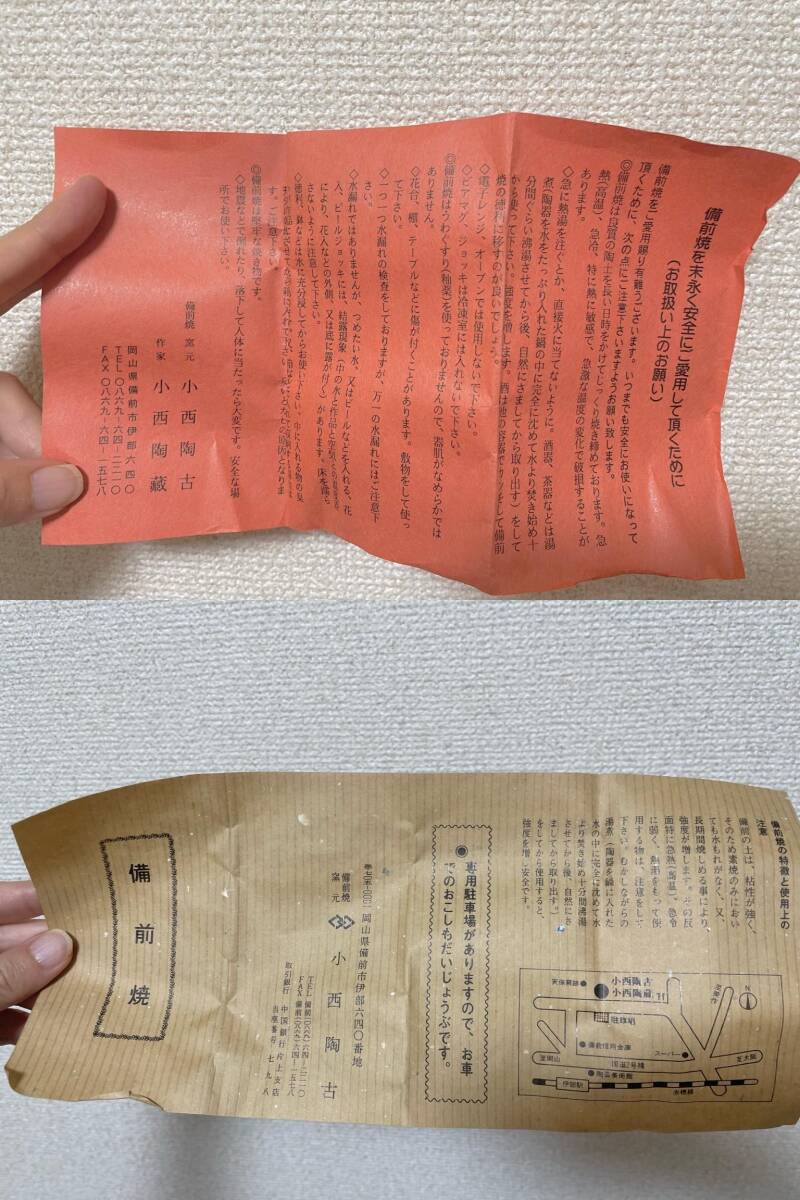 備前焼を末永く安全にご愛用して頂くために
(お取扱い上のお願い)
備前焼をご愛用賜り有難うございます。いつまでも安全にお使いになって
頂くために、次の点にご注意下さいますようお願い致します。
◎備前焼は良質の陶土を長い日時をかけてじっくり焼き締めております。急
熱(高温)、急冷、特に熱に敏感で、急激な温度の変化で破損することが
あります。
◇急に熱湯を注ぐとか、直接火に当てないように。酒器、茶器などは湯
煮(陶器を水をたっぷり入れた鍋の中に完全に沈めて水より焚き始め十
分間ぐらい沸湯させてから後、自然にさましてから取り出す)をして
から使って下さい。強度を増します。酒は他の容器でカンをして備前
焼の徳利に移すのが良いでしょう。
◇電子レンジ、オーブンでは使用しないで下さい。
◇ビアマグ、ジョッキは冷凍室には入れないで下さい。
◎備前焼はうわぐすり(釉薬)を使っておりませんので、器肌がなめらかでは
ありません。
◇花台、棚、テーブルなどに傷が付くことがあります。敷物をして使っ
て下さい。
◇一つ一つ水漏れの検査をしておりますが、万一の水漏れにはご注意下
さい。
◇水漏れではありませんが、つめたい水、又はビールなどを入れる、花
入、ビールジョッキには、結露現象(中の水と作品と空気
により、花入などの外側、又は底に露が付く)があります。床を濡ら
さないように注意して下さい。
◇徳利、鉢などは水に充分浸してからお使い下さい。中に入れる物の臭
す。ご注意下さい。
◎備前焼は堅牢な焼き物です。
◇地震などで倒れたり、落下して人体に当たったら大変です。安全な場
所でお使い下さい。
備前焼 窯元 小西陶古
作家 小西陶藏
岡山県備前市伊部六四〇
TEL〇八六九・六四-一二一〇
FAX〇八六九・六四-一五七八
備前焼の特徴と使用上の
注意
備前の土は、粘性が強く、
そのため素焼のみにおい
ても水もれがなく、又、
長期間焼しめる事により、
強度が増します。その反
面特に急熱(高温)、急冷
に弱く、熱湯をもって使
用する物は、注意をして
下さい。むかしながらの
湯煮(陶器を鍋に入れた
水の中に完全に沈めて水
より焚き始め十分間沸湯
させてから後、自然にさ
ましてから取り出す)
をしてから使用すると、
強度を増し安全です。
N
天保窯跡
小西陶古
小西陶藏
駐車場
備前信用金庫
スーパー
至岡山
国道2号線
至大阪
陶芸美術館
伊部駅
赤穂線
◉専用駐車場がありますので、お車
でのおこしもだいじょうぶです。
岡山県備前市伊部六四〇番地
備前焼
窯元 小西陶古
TEL 備前(〇八六九)六四-一二一〇
FAX 備前(〇八六九)六四-一五七八
取引銀行 中国銀行 片上支店
当座番号 七九八
備前焼